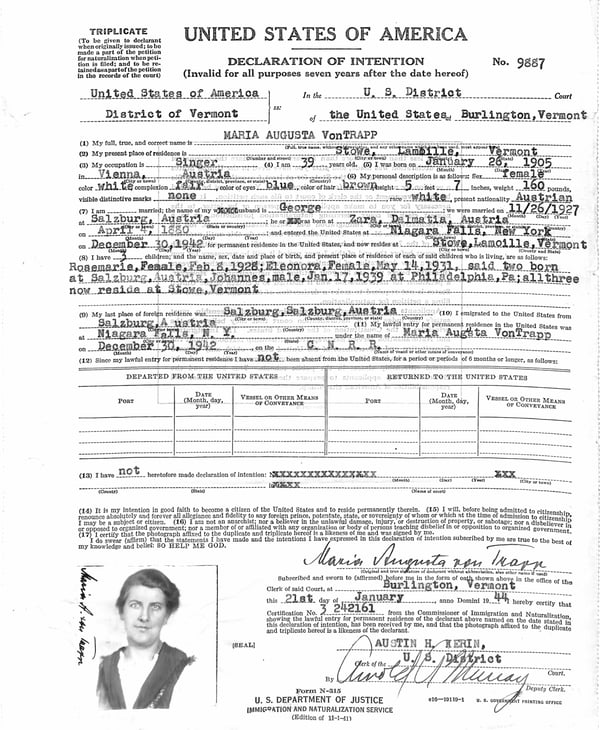 TRIPLICATE
(To be given to declarant
when originally issued; to be
made a part of the petition
for naturalization when peti-
tion is filed; and to be re-
tained as a part of the petition
in the records of the court)
UNITED STATES OF AMERICA
DECLARATION OF INTENTION
(Invalid for all purposes seven years after the date hereof)
No. 9887
United States of America
In the U. S. District Court
District of Vermont
ss:
of the United States, Burlington, Vermont
MARIA AUGUSTA VonTRAPP
(1) My full, true, and correct name is
(2) My present place of residence is Stowe, Lamoille, Vermont
(3) My occupation is Singer (4) I am 39 years old. (5) I was born on January 26, 1905
in Vienna, Austria (6) My personal description is as follows: Sex female
color white complexion fair, color of eyes blue, color of hair brown height 5 feet 7 inches, weight 160 pounds,
visible distinctive marks none race white, present nationality Austrian
(7) I am married; the name of my husband is George we were married on 11/26/1927
at Salzburg, Austria he was born at Zara, Dalmatia, Austria
on April 4, 1880 and entered the United States at Niagara Falls, New York
on December 30, 1942 for permanent residence in the United States, and now resides at Stowe, Lamoille, Vermont
(8) I have 3 children; and the name, sex, date and place of birth, and present place of residence of each of said children who is living, are as follows:
Rosemarie, Female, Feb. 8, 1928; Eleonora, Female, May 14, 1931, said two born
at Salzburg, Austria, Johannes, male, Jan. 17, 1939 at Philadelphia, Pa; all three
now reside at Stowe, Vermont
(9) My last place of foreign residence was Salzburg, Salzburg, Austria (10) I emigrated to the United States from
Salzburg, A ustria (11) My lawful entry for permanent residence in the United States was
at Niagara Falls, N. Y. under the name of Maria Augusta VonTrapp
on December 30, 1942 on the C. N. R. R.
(Month) (Day) (Year) (Name of vessel or other means of conveyance)
(12) Since my lawful entry for permanent residence I have not been absent from the United States, for a period or periods of 6 months or longer, as follows:
DEPARTED FROM THE UNITED STATES RETURNED TO THE UNITED STATES
PORT DATE (Month, day, year) VESSEL OR OTHER MEANS OF CONVEYANCE PORT DATE (Month, day, year) VESSEL OR OTHER MEANS OF CONVEYANCE
(13) I have not heretofore made declaration of intention: No XXXXXXXXXXXXXXXXX XXX
(Month) (Day) (Year) (City or town)
(County) (State) (Name of court)
(14) It is my intention in good faith to become a citizen of the United States and to reside permanently therein. (15) I will, before being admitted to citizenship,
renounce absolutely and forever all allegiance and fidelity to any foreign prince, potentate, state, or sovereignty of whom or which at the time of admission to citizenship
I may be a subject or citizen. (16) I am not an anarchist; nor a believer in the unlawful damage, injury, or destruction of property, or sabotage; nor a disbeliever in
or opposed to organized government; nor a member of or affiliated with any organization or body of persons teaching disbelief in or opposition to organized government.
(17) I certify that the photograph affixed to the duplicate and triplicate hereof is a likeness of me and was signed by me.
I do swear (affirm) that the statements I have made and the intentions I have expressed in this declaration of intention subscribed by me are true to the best of
my knowledge and belief: SO HELP ME GOD.
Maria Augusta von Trapp
(Original and true signature of declarant without abbreviation, also other name if used)
Subscribed and sworn to (affirmed) before me in the form of oath shown above in the office of the
Clerk of said Court, at Burlington, Vermont
this 21st day of January anno Domini 19 44 I hereby certify that
Certification No. 3 242161 from the Commissioner of Immigration and Naturalization,
showing the lawful entry for permanent residence of the declarant above named on the date stated in
this declaration of intention, has been received by me, and that the photograph affixed to the duplicate
and triplicate hereof is a likeness of the declarant.
[SEAL]
AUSTIN H. KERIN,
Clerk of the U. S. District Court.
By Arnold A Murray Deputy Clerk.
Maria A. von Trapp
Form N-315
U. S. DEPARTMENT OF JUSTICE
IMMIGRATION AND NATURALIZATION SERVICE
(Edition of 11-1-41)
16—19119-1 U. S. GOVERNMENT PRINTING OFFICE